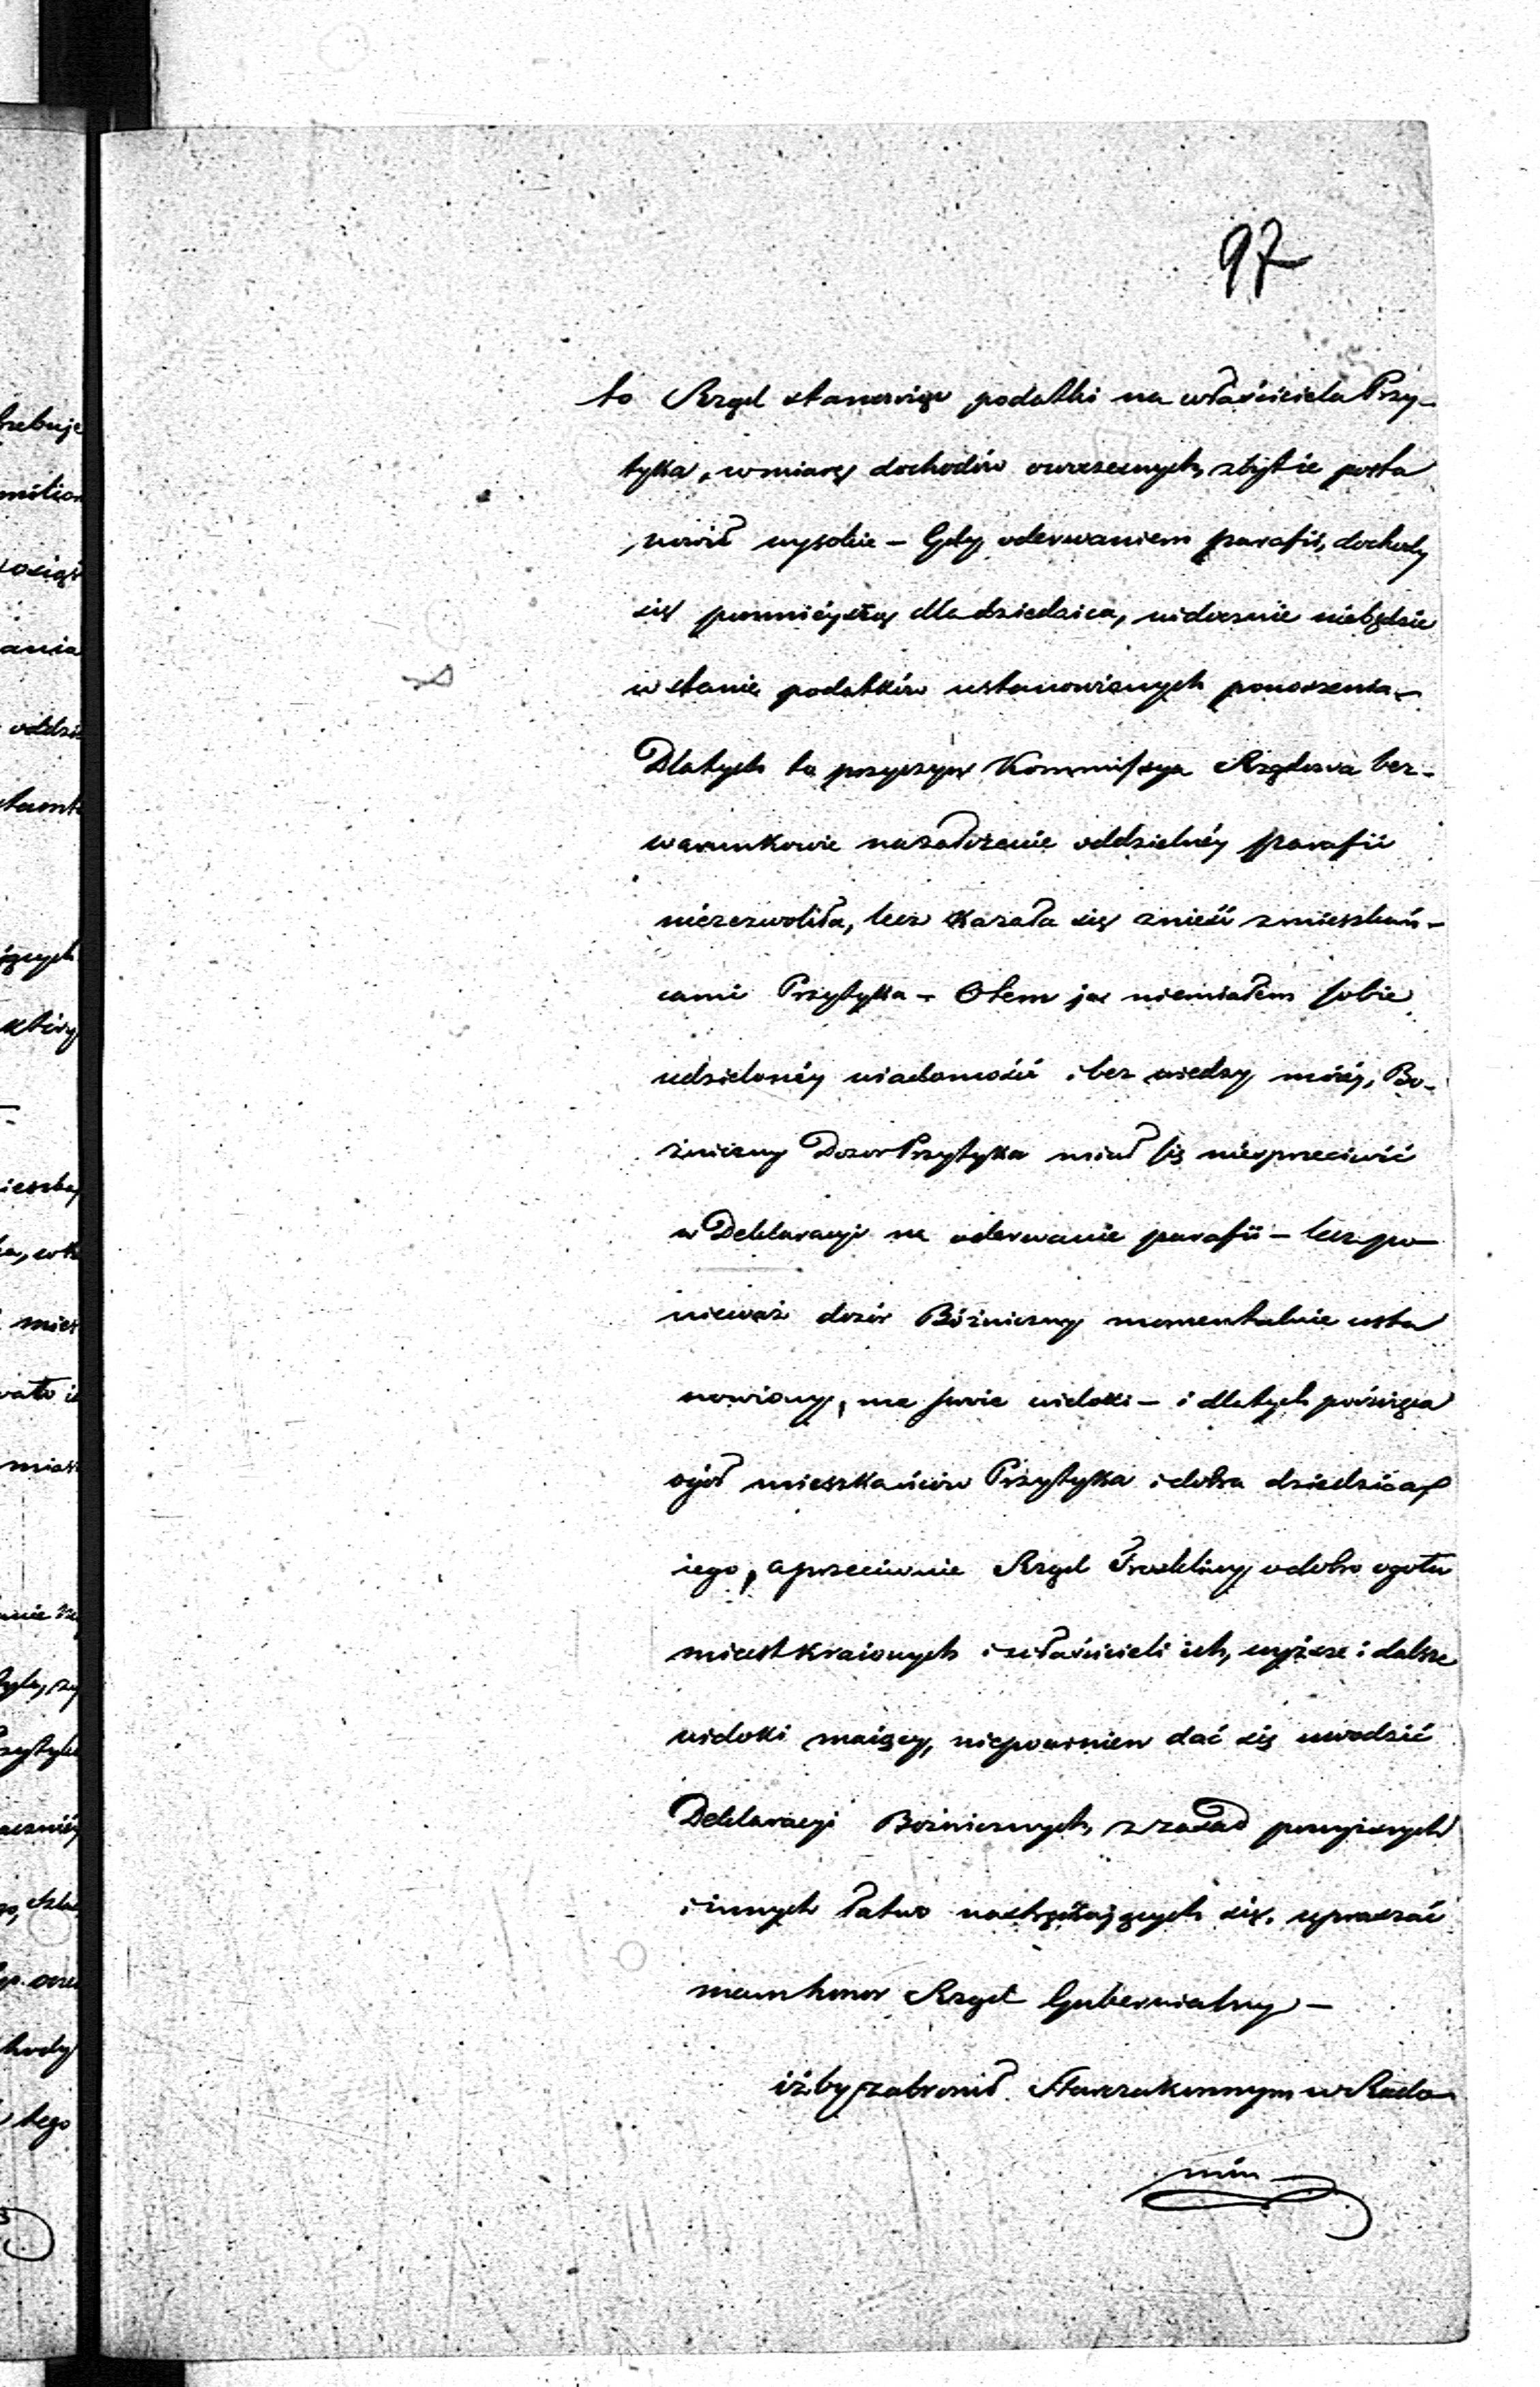 97
to Rząd stanowiąc podatki na właściciela Przy-
tyka, w miarę dochodów owczesnych, zbyt ie posta
nowił wysokie – Gdy oderwaniem parafii, dochody
się pomnieyszą dla dziedzica, widocznie niebędzie
w stanie podatków ustanowionych ponoszenia –
Dlatych to przyczyn Kommissya Rządowa bez-
warunkowie nazałożenie oddzielnéy parafii
niezezwoliła, lecz kazała się znieść zmieszkań-
cami Przytyka – Otem ja niemiałem sobie
udzielonéy wiadomości i bez wiedzy moiéj, Bo-
żniczny Dozor Przytyka miał się niesprzeciwić
w Deklaracyi na oderwanie parafii – lecz po-
nieważ dozór Bóżniczny momentalnie usta
nowiony, ma swoie widoki – i dlatych poświęca
ogół mieszkańców Przytyka i dobra dziedzica
iego, aprzeciwnie Rząd Troskliwy odobro ogołu
miast kraiowych i właścicieli ich, wyższe i dalsze
widoki maiący, niepowinien dać się uwodzić
Deklaracyi Bożnicznych, z zasad powyższych
i innych łatwo nastręczających się, upraszać
mam honor Rząd Gubernialny –
iżby zabronił Starozakonnym w Rado-
miu